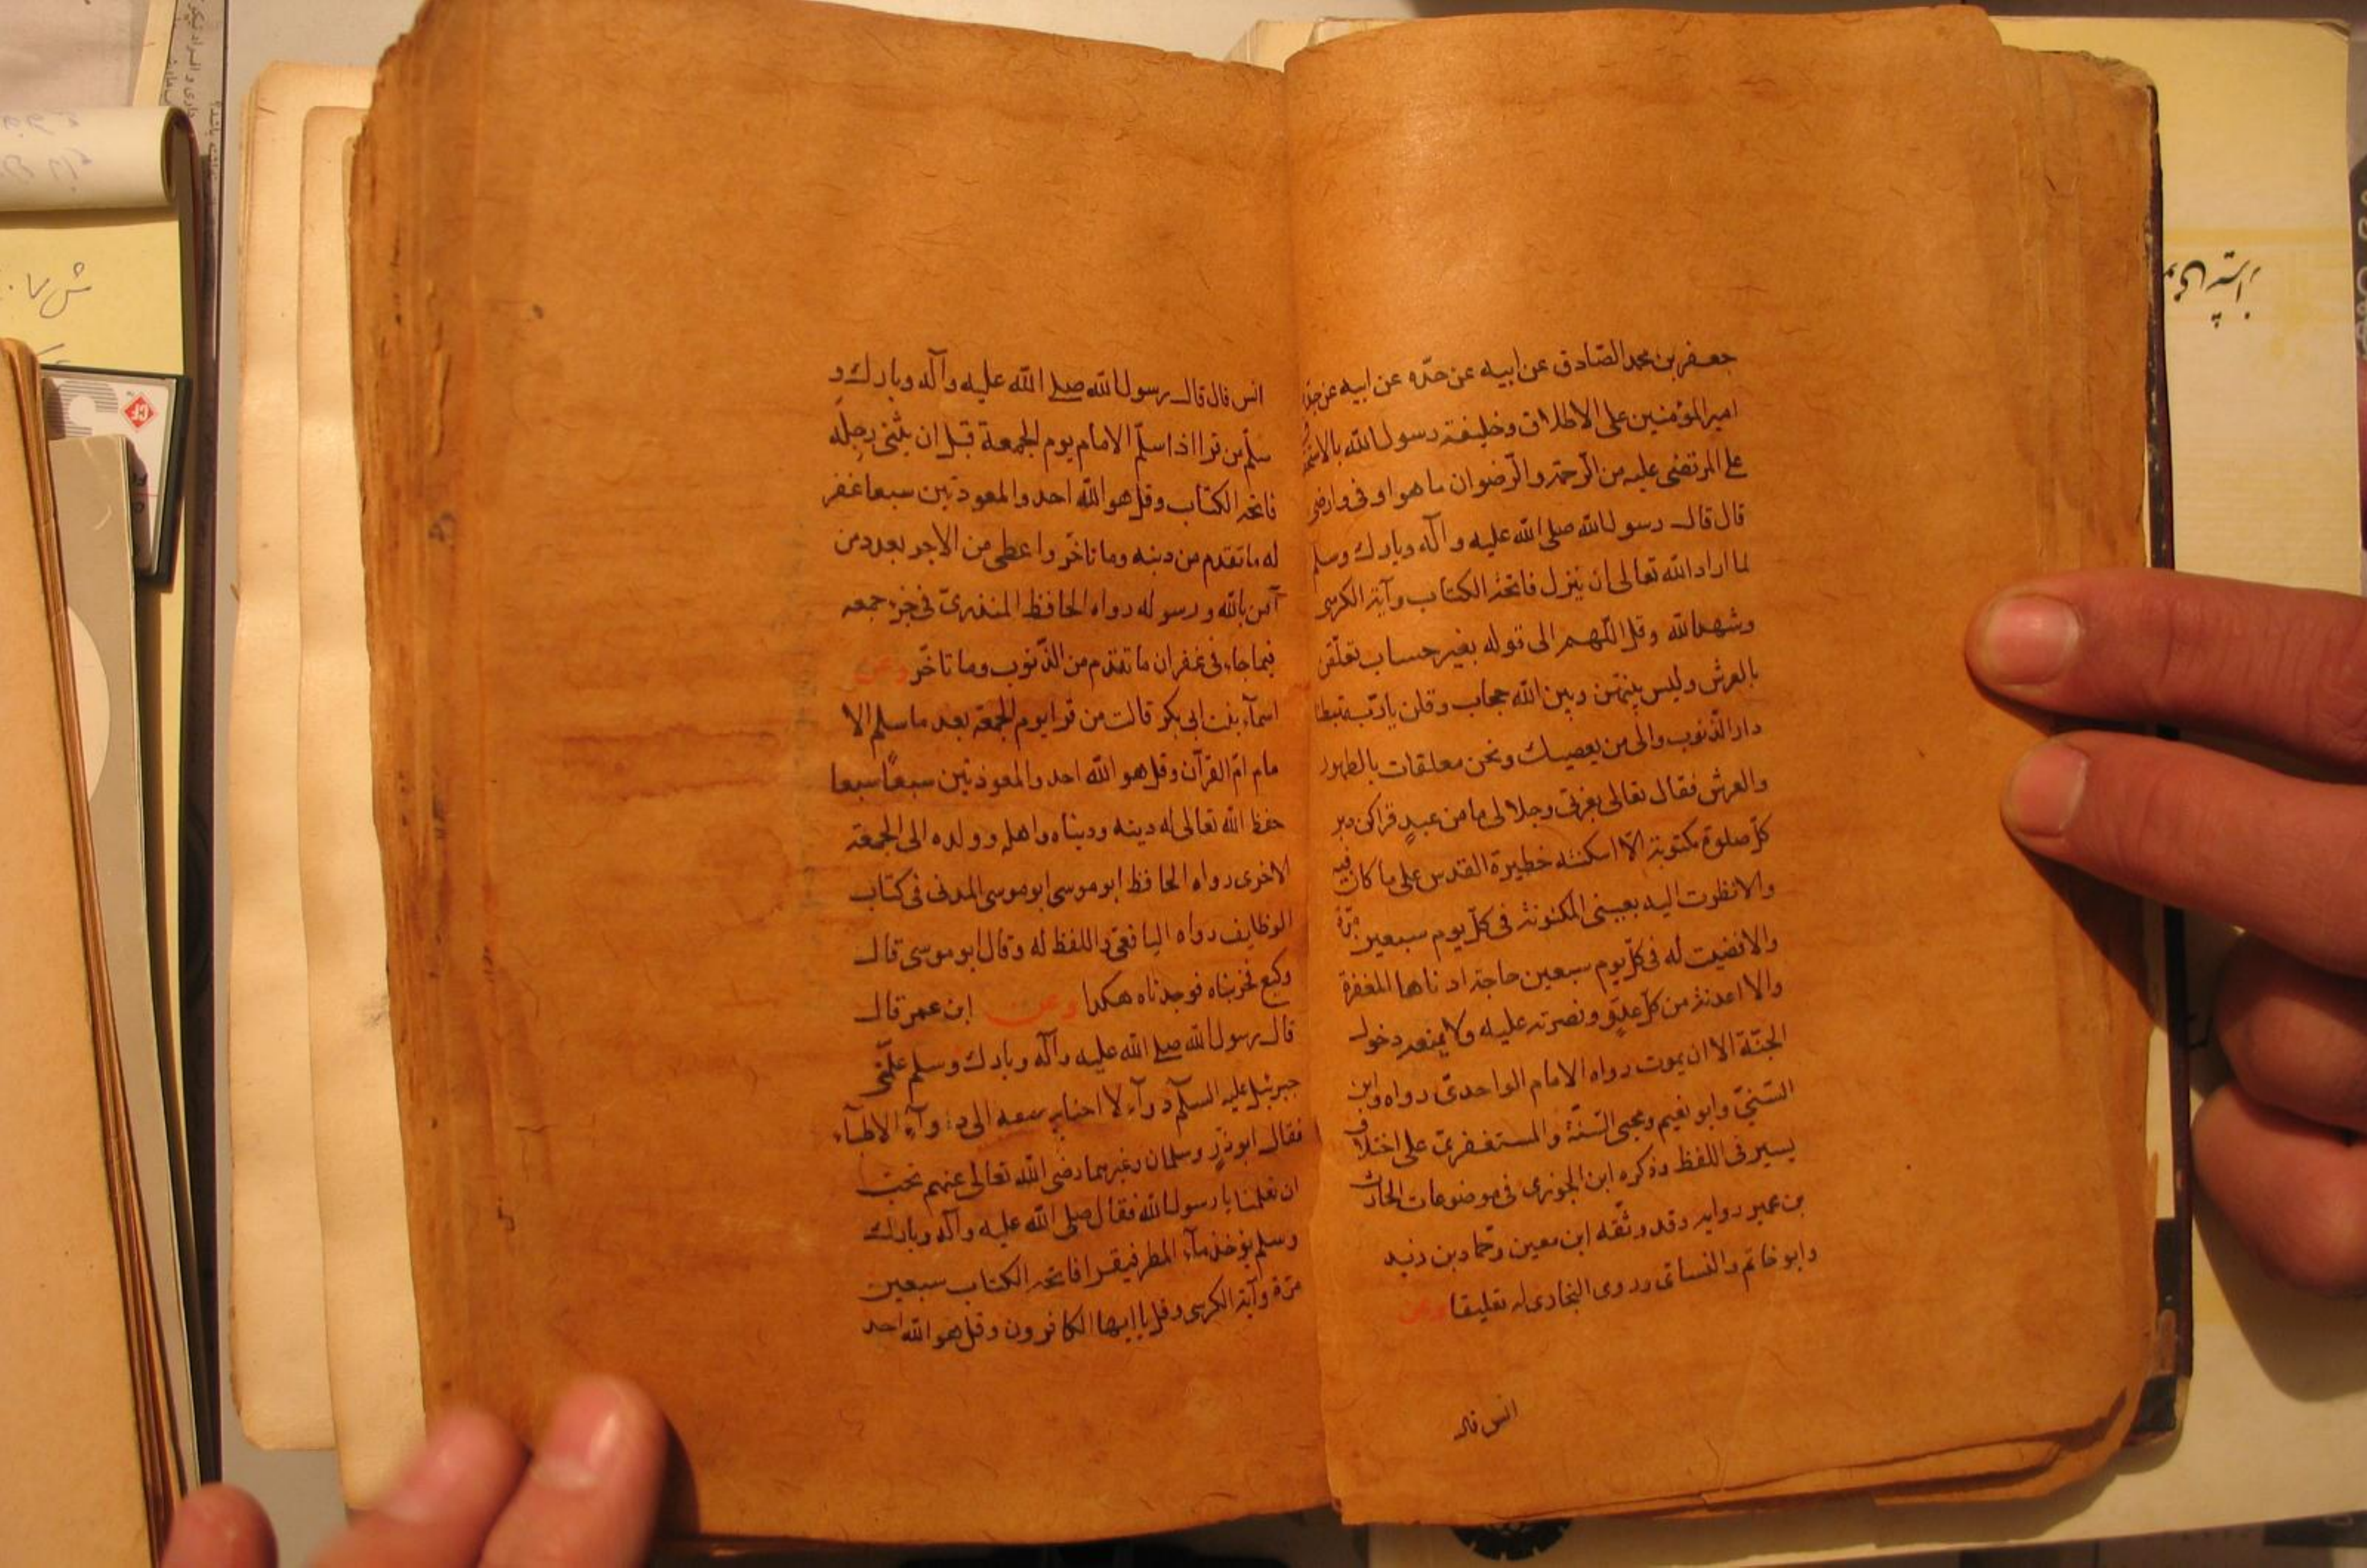 جعفر بن محمد الصّادق عن ابيه عن جدّه عن ابيه عن جدّه
امير المؤمنين على الاطلاق وخليفة رسول الله
على المرتضى عليه من الرّحمة والرّضوان ما هو اوفى وارضى
قال قال رسول الله صلى الله عليه وآله وبارك وسلم
لما اراد الله تعالى ان ينزل فاتحة الكتاب وآية الكرسى
وشهد الله وقل اللّهم الى قوله بغير حساب تعلّقن
بالعرش وليس بينهنّ وبين الله حجاب وقلن يا ربّ تهبطنا
دار الذّنوب والى من يعصيك ونحن معلقات بالطهور
والعرش فقال تعالى بعزتى وجلالى ما من عبدٍ قراكن دبر
كلّ صلوة مكتوبة الّا اسكنته خطيرة القدس على ما كان فيه
والا نظرت اليه بعينى المكنونة فى كلّ يوم سبعين مرّة
والا قضيت له فى كلّ يوم سبعين حاجة ادناها المغفرة
والا اعذته من كلّ عدوٍّ ونصرته عليه ولا يمنعه دخول
الجنّة الا ان يموت رواه الامام الواحدىّ رواه وابن
السّنىّ وابو نعيم ومحيى السّنّة والمستغفرىّ على اختلاف
يسير فى اللفظ وذكره ابن الجوزى فى موضوعات الحارث
بن عمير روايه وقد وثّقه ابن معين وحماد بن زيد
وابو خاتم والنسائى وروى البخارى له تعليقا وعن
انس قال
انس قال قال رسول الله صلى الله عليه وآله وبارك و
سلّم من قرا اذا سلّم الامام يوم الجمعة قبل ان يثنى رجله
فاتحة الكتاب وقل هو الله احد والمعوذتين سبعا غفر
له ما تقدم من ذنبه وما تاخّر واعطى من الاجر بعدد من
آمن بالله ورسوله رواه الحافظ المنذرىّ فى جزء جمعه
فيما جاء فى غفران ما تقدم من الذّنوب وما تاخّر وعن
اسمآء بنت ابى بكر قالت من قرا يوم الجمعة بعد ما سلم الا
مام امّ القرآن وقل هو الله احد والمعوذتين سبعًا سبعا
حفظ الله تعالى له دينه ودنياه واهله وولده الى الجمعة
الاخرى رواه الحافظ ابو موسى ابو موسى المدنى فى كتاب
الوظايف رواه اليافعى واللفظ له وقال ابو موسى قال
وكيع فجربناه فوجدناه هكذا وعن ابن عمر قال
قال رسول الله صلى الله عليه وآله وبارك وسلم علّمنى
جبرئيل عليه السلم دوآء لا احتاج معه الى دوآء الاطبآء
فقال ابو ذرّ وسلمان وغيرهما رضى الله تعالى عنهم نحب
ان تعلمنا يا رسول الله فقال صلى الله عليه وآله وبارك
وسلم يؤخذ مآء المطر فيقرا فاتحة الكتاب سبعين
مرّة وآية الكرسى وقل يا ايها الكافرون وقل هو الله احد